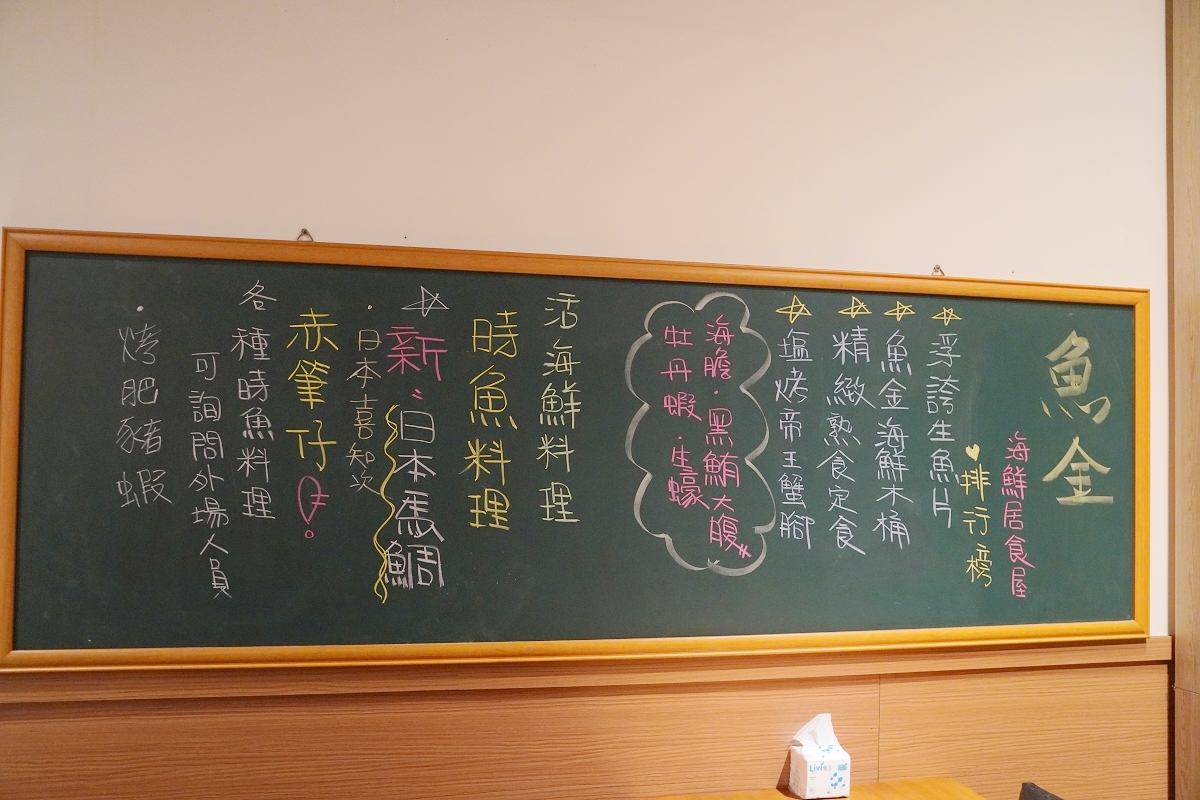 魚金
海鮮居食屋
排行榜
浮誇生魚片
魚金海鮮木桶
精緻熟食定食
塩烤帝王蟹腳
海膽·黑鮪大腹
牡丹蝦·生蠔
活海鮮料理
時魚料理
新:日本馬鯛
·日本喜知次
赤筆仔!
各種時魚料理
可詢問外場人員
·烤肥豬蝦
Livi